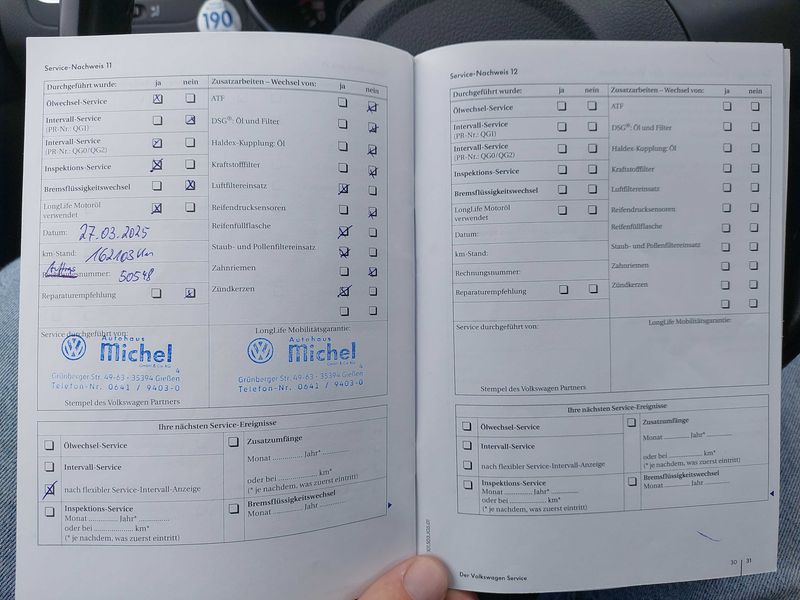 190
Service-Nachweis 11
Durchgeführt wurde: ja nein
Ölwechsel-Service
Intervall-Service
(PR-Nr.: QG1)
Intervall-Service
(PR-Nr.: QG0/QG2)
Inspektions-Service
Bremsflüssigkeitswechsel
LongLife Motoröl
verwendet
Datum: 27.03.2025
km-Stand: 162103 km
Auftrags nummer: 50548
Reparaturempfehlung
Zusatzarbeiten – Wechsel von: ja nein
ATF
DSG®: Öl und Filter
Haldex-Kupplung: Öl
Kraftstofffilter
Luftfiltereinsatz
Reifendrucksensoren
Reifenfüllflasche
Staub- und Pollenfiltereinsatz
Zahnriemen
Zündkerzen
Service durchgeführt von:
Autohaus
Michel
GmbH & Co KG
Grünberger Str. 49-63 · 35394 Gießen
Telefon-Nr. 0641 / 9403-0
Stempel des Volkswagen Partners
LongLife Mobilitätsgarantie:
Autohaus
Michel
GmbH & Co KG
Grünberger Str. 49-63 · 35394 Gießen
Telefon-Nr. 0641 / 9403-0
Ihre nächsten Service-Ereignisse
Ölwechsel-Service
Intervall-Service
nach flexibler Service-Intervall-Anzeige
Inspektions-Service
Monat ............... Jahr* ...............
oder bei ............... km*
(* je nachdem, was zuerst eintritt)
Zusatzumfänge
Monat ............... Jahr* ...............
oder bei ............... km*
(* je nachdem, was zuerst eintritt)
Bremsflüssigkeitswechsel
Monat ............... Jahr ...............
Service-Nachweis 12
Durchgeführt wurde: ja nein
Ölwechsel-Service
Intervall-Service
(PR-Nr.: QG1)
Intervall-Service
(PR-Nr.: QG0/QG2)
Inspektions-Service
Bremsflüssigkeitswechsel
LongLife Motoröl
verwendet
Datum:
km-Stand:
Rechnungsnummer:
Reparaturempfehlung
Zusatzarbeiten – Wechsel von: ja nein
ATF
DSG®: Öl und Filter
Haldex-Kupplung: Öl
Kraftstofffilter
Luftfiltereinsatz
Reifendrucksensoren
Reifenfüllflasche
Staub- und Pollenfiltereinsatz
Zahnriemen
Zündkerzen
Service durchgeführt von:
Stempel des Volkswagen Partners
LongLife Mobilitätsgarantie:
Ihre nächsten Service-Ereignisse
Ölwechsel-Service
Intervall-Service
nach flexibler Service-Intervall-Anzeige
Inspektions-Service
Monat ............... Jahr* ...............
oder bei ............... km*
(* je nachdem, was zuerst eintritt)
Zusatzumfänge
Monat ............... Jahr* ...............
oder bei ............... km*
(* je nachdem, was zuerst eintritt)
Bremsflüssigkeitswechsel
Monat ............... Jahr ...............
Der Volkswagen Service
30 31